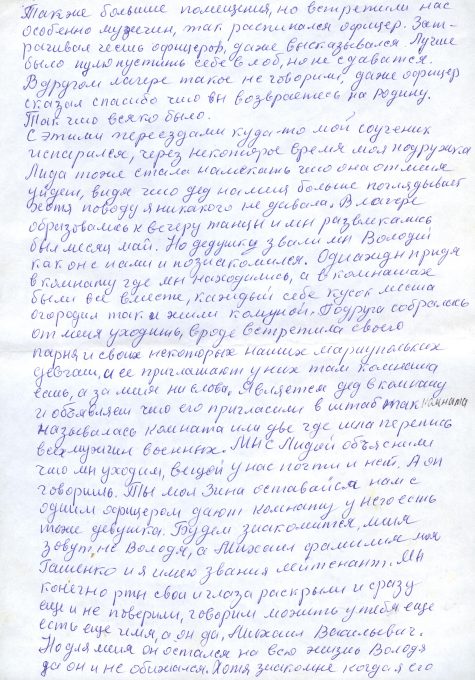 Также большие помещения, но встретили нас
особенно мужчин, так распинался офицер. Зат-
рагивал честь офицеров, даже высказывался. Лучше
было пулю пустить себе в лоб, но не сдаватся.
В другом лагере такое не говорили, даже офицер
сказал спасибо что вы возвраетесь на родину.
Так что всяко было.
С этими переездами куда-то мой соученик
испарился, через некоторое время моя подружка
Лида тоже стала намекать что она от меня
уйдет, видя что дед на меня больше поглядывает
хотя поводу я никакого не давала. В лагере
образовались к вечеру танцы и мы развлекались
был месяц май. Но дедушку звали мы Володей
как он с нами и познакомился. Однажды придя
в комнату где мы находились, а в комнатах
были все вместе, каждый себе кусок места
огородил так и жили комуной. Подруга собралась
от меня уходить, вроде встретила своего
парня и своих некоторых наших мариупольких
девчат, и ее приглашают у них там комната
есть, а за меня ни слова. Является дед в комнату
и объявляет что его пригласили в штаб так комната
называлась комната или две где шла перепись
всех мужчин военных. Мы с Лидой объясним
что мы уходим, вещей у нас почти и нет. А он
говорить. Ты моя Зина оставайся нам с
одним офицером дают комнату у него есть
тоже девушка. Будем знакомится, меня
зовут, не Володя, а Михаил фамилия моя
Гашенко и я имею звания лейтенант. Мы
конечно рты свои и глаза раскрыли и сразу
еще и не поверили, говорим можить у тебя еще
есть еще имя, а он да, Михаил Васильевич.
Но для меня он остался на всю жизнь Володя
да он и не обижался. Хотя знакомые когда я его